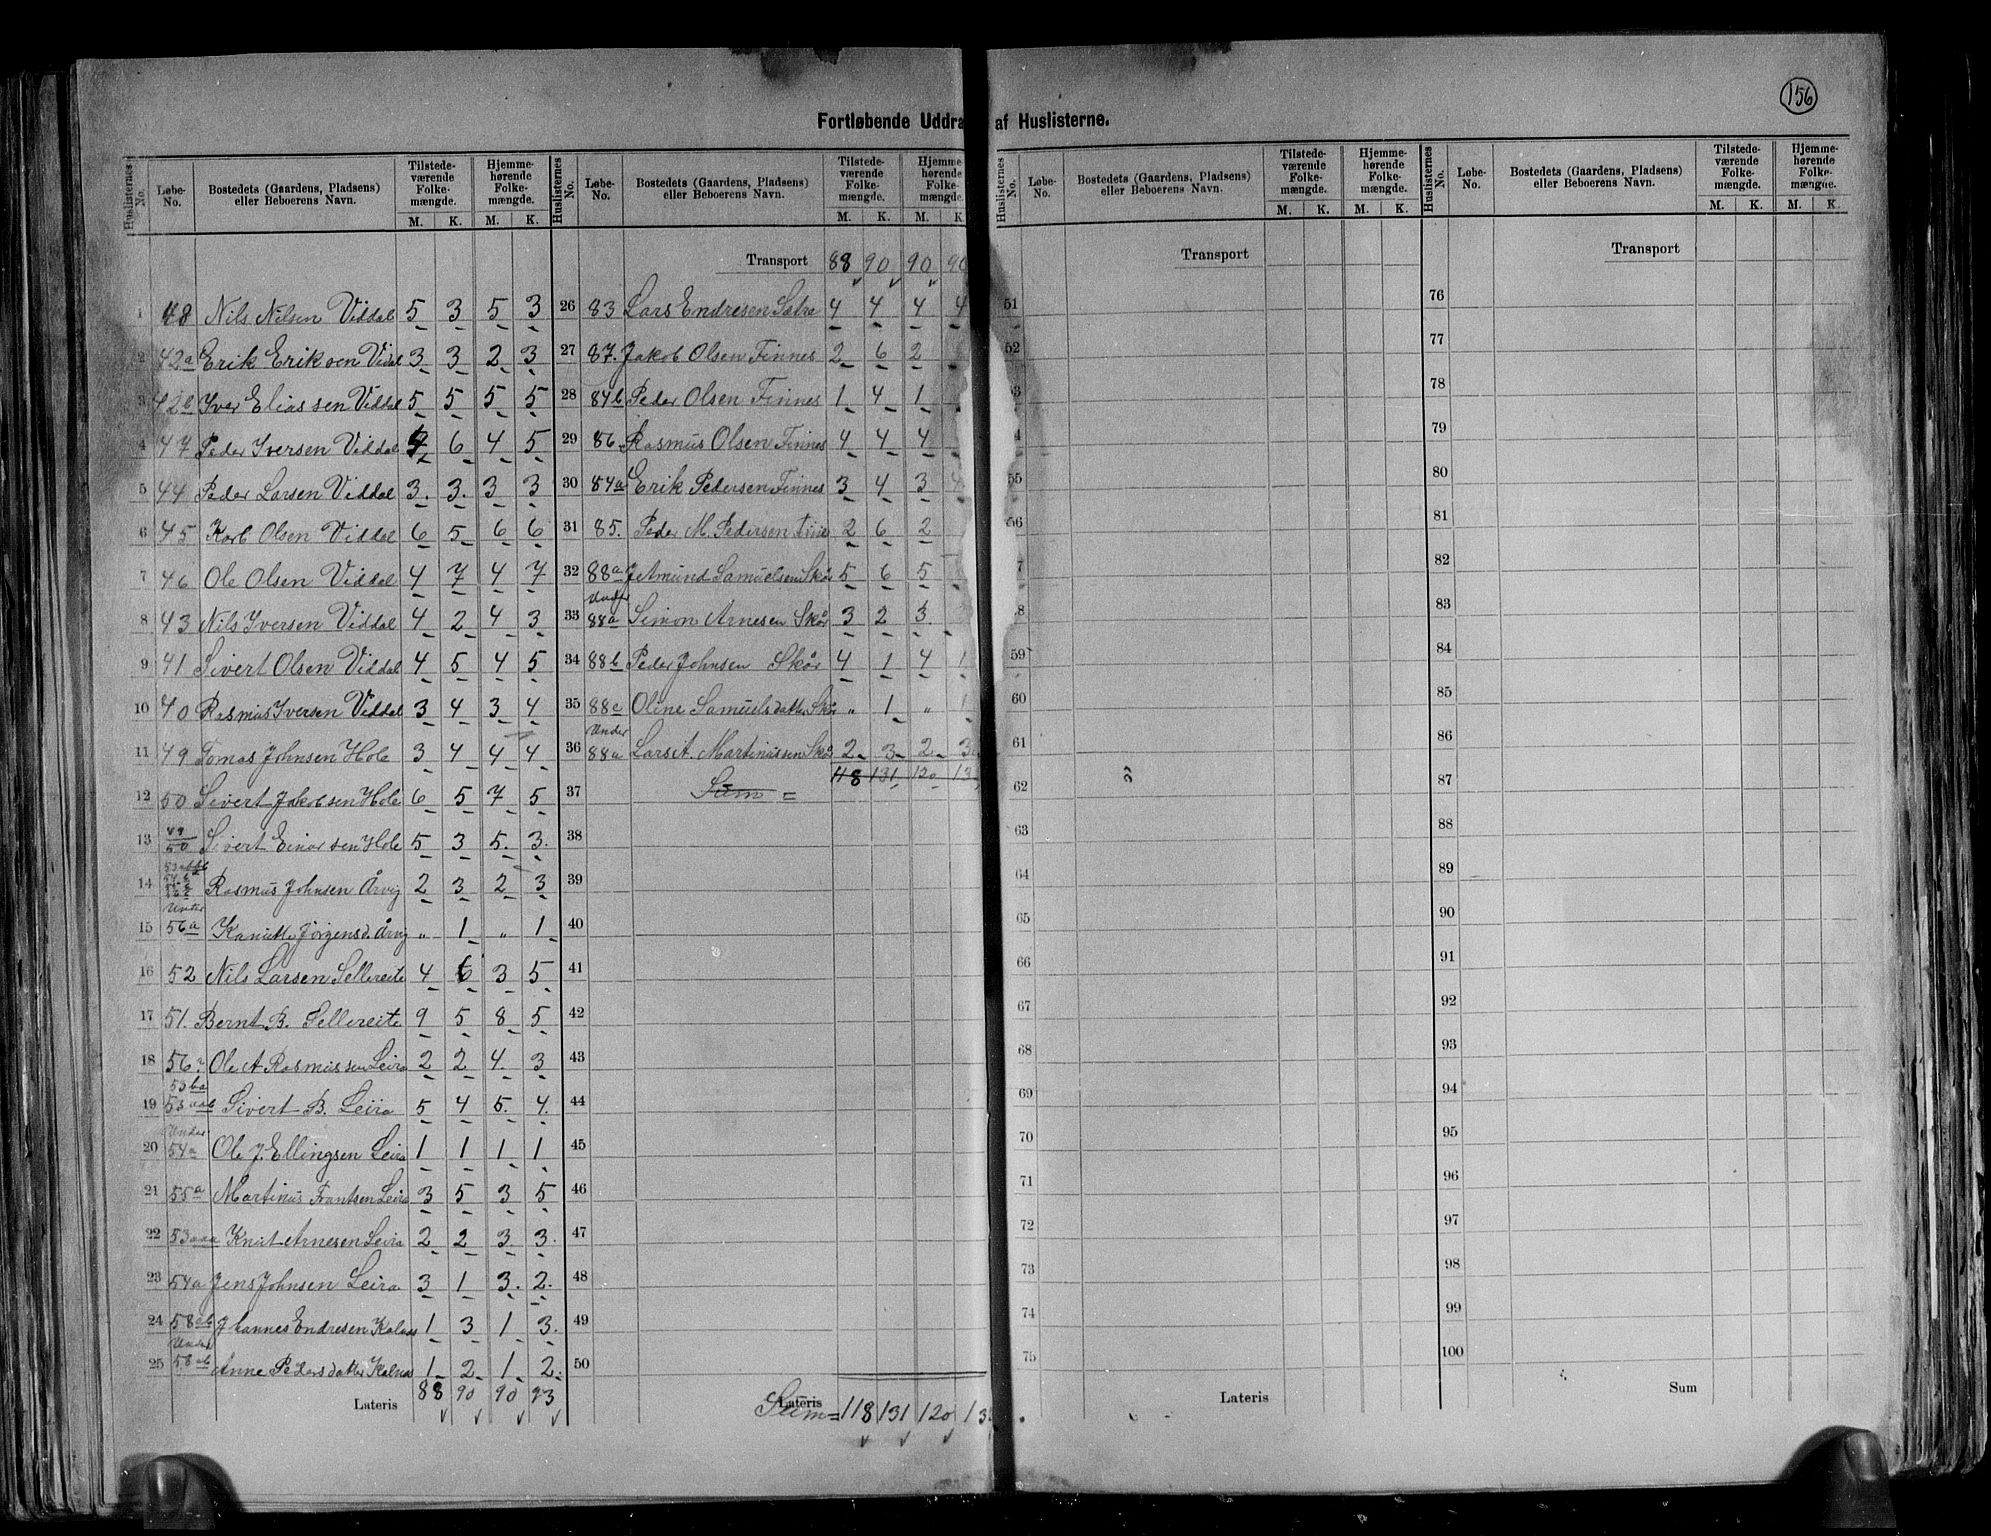 156
Fortløbende Uddra af Huslisterne.
Huslisternes No. Løbe-No. Bostedets (Gaardens, Pladsens) eller Beboerens Navn. Tilstede-værende Folke-mængde. M. K. Hjemme-hørende Folke-mængde. M. K.
1 48 Nils Nilsen Viddal 5 3 5 3
2 42a Erik Eriksen Vidal 3 3 2 3
3 42c Iver Eliassen Viddal 5 5 5 5
4 47 Peder Iversen Viddal 6 4 5
5 44 Peder Larsen Viddal 3. 3. 3 3
6 45 Karl Olsen Viddal 6 5 6 6
7 46 Ole Olsen Viddal 4 7 4 7
8 43 Nils Iversen Viddal 4 2 4 3
9 41 Sivert Olsen Viddal 4 5 4 5
10 40 Rasmus Iversen Viddal 3 4 3 4
11 49 Tomas Johnsen Hole 3 4 4 4
12 50 Sivert Jakobsen Hole 6 5 7 5
13 49/50 Sivert Einarsen Hole 5 3 5. 3.
14 Rasmus Johnsen Årvig 2 3 2 3
15 Under 56a Jørgensd. Årvig " 1 " 1
16 52 Nils Larsen Sellereite 4 6 3 5
17 51. Bernt B. Sellereite 9 5 8 5
18 56 Ole A Rasmussen Leira 2 2 4. 3
19 53ba 53aab Sivert B. Leira 5 4 5. 4.
20 Under 54a Ole J. Ellingsen Leira 1 1 1 1
21 55a Martinus Frantsen Leira 3 5 3 5
22 53aaa Knut Arnesen Leira 2 2 3 3.
23 54a Jens Johnsen Leira 3 1 3. 2.
24 58ab Johannes Endresen Kalnæs 1 3 1 3.
25 Under 58ab Anne Pedersdatter Kalnæs 1 2 1 2
Lateris 88 90 90 93
Huslisternes No. Løbe-No. Bostedets (Gaardens, Pladsens) eller Beboerens Navn. Tilstede-værende Folke-mængde. M. K. Hjemme-hørende Folke-mængde. M. K
Transport 88 90 90 90
26 83 Lars Endresen Sætra 4 4 4 4
27 87. Jakob Olsen Finnes 2 6 2
28 84b Peder Olsen Finnes 1 4 1
29 86 Rasmus Olsen Finnes 4 4 4
30 84a Erik Pedersen Finnes 3 4 3 4
31 85. Peder M. Pedersen 2 6 2
32 88a Jetmund Samuelsen Skår 5 6 5
33 Under 88a Simon Arnesen Skår 3 2 3.
34 88b Peder Johnsen Skår 4 1 4 1
35 88c Oline Samuelsdatter Skår " 1 " 1
36 Under 88a Larsit Martinussen Skår 2 3 2 3
118 131 120 13
37 Sum =
38
39
40
41
42
43
44
45
46
47
48
49
50
Lateris
Sum = 118 131 120 13
Huslisternes No. Løbe-No. Bostedets (Gaardens, Pladsens) eller Beboerens Navn. Tilstede-værende Folke-mængde. M. K. Hjemme-hørende Folke-mængde. M. K.
Transport
51
52
53
4
55
56
7
8
59
60
61
62
63
64
65
66
67
68
69
70
71
72
73
74
75
Lateris
Huslisternes No. Løbe-No. Bostedets (Gaardens, Pladsens) eller Beboerens Navn. Tilstede-værende Folke-mængde. M. K. Hjemme-hørende Folke-mængde. M. K.
Transport
76
77
78
79
80
81
82
83
84
85
86
87
88
89
90
91
92
93
94
95
96
97
98
99
100
Sum